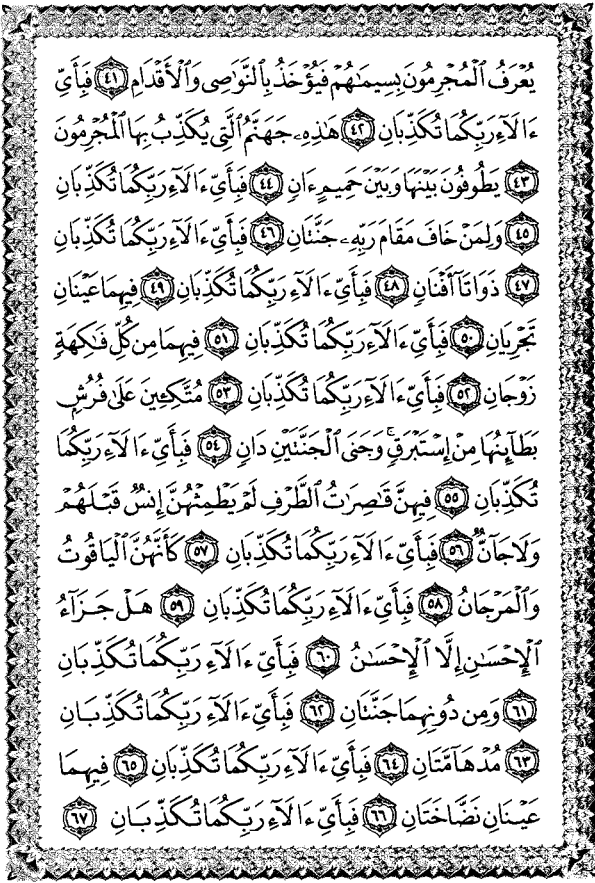 يُعْرَفُ الْمُجْرِمُونَ بِسِيمَاهُمْ فَيُؤْخَذُ بِالنَّوَاصِي وَالْأَقْدَامِ ٤١ فَبِأَيِّ
ءَالَآءِ رَبِّكُمَا تُكَذِّبَانِ ٤٢ هَٰذِهِۦ جَهَنَّمُ الَّتِي يُكَذِّبُ بِهَا الْمُجْرِمُونَ
٤٣ يَطُوفُونَ بَيْنَهَا وَبَيْنَ حَمِيمٍ ءَانٍ ٤٤ فَبِأَيِّ ءَالَآءِ رَبِّكُمَا تُكَذِّبَانِ
٤٥ وَلِمَنْ خَافَ مَقَامَ رَبِّهِۦ جَنَّتَانِ ٤٦ فَبِأَيِّ ءَالَآءِ رَبِّكُمَا تُكَذِّبَانِ
٤٧ ذَوَاتَآ أَفْنَانٍ ٤٨ فَبِأَيِّ ءَالَآءِ رَبِّكُمَا تُكَذِّبَانِ ٤٩ فِيهِمَا عَيْنَانِ
تَجْرِيَانِ ٥٠ فَبِأَيِّ ءَالَآءِ رَبِّكُمَا تُكَذِّبَانِ ٥١ فِيهِمَا مِن كُلِّ فَاكِهَةٍ
زَوْجَانِ ٥٢ فَبِأَيِّ ءَالَآءِ رَبِّكُمَا تُكَذِّبَانِ ٥٣ مُتَّكِئِينَ عَلَىٰ فُرُشٍ
بَطَآئِنُهَا مِنْ إِسْتَبْرَقٍ ۚ وَجَنَى الْجَنَّتَيْنِ دَانٍ ٥٤ فَبِأَيِّ ءَالَآءِ رَبِّكُمَا
تُكَذِّبَانِ ٥٥ فِيهِنَّ قَاصِرَاتُ الطَّرْفِ لَمْ يَطْمِثْهُنَّ إِنسٌ قَبْلَهُمْ
وَلَا جَآنٌّ ٥٦ فَبِأَيِّ ءَالَآءِ رَبِّكُمَا تُكَذِّبَانِ ٥٧ كَأَنَّهُنَّ الْيَاقُوتُ
وَالْمَرْجَانُ ٥٨ فَبِأَيِّ ءَالَآءِ رَبِّكُمَا تُكَذِّبَانِ ٥٩ هَلْ جَزَآءُ
الْإِحْسَٰنِ إِلَّا الْإِحْسَٰنُ ٦٠ فَبِأَيِّ ءَالَآءِ رَبِّكُمَا تُكَذِّبَانِ
٦١ وَمِن دُونِهِمَا جَنَّتَانِ ٦٢ فَبِأَيِّ ءَالَآءِ رَبِّكُمَا تُكَذِّبَانِ
٦٣ مُدْهَآمَّتَانِ ٦٤ فَبِأَيِّ ءَالَآءِ رَبِّكُمَا تُكَذِّبَانِ ٦٥ فِيهِمَا
عَيْنَانِ نَضَّاخَتَانِ ٦٦ فَبِأَيِّ ءَالَآءِ رَبِّكُمَا تُكَذِّبَانِ ٦٧